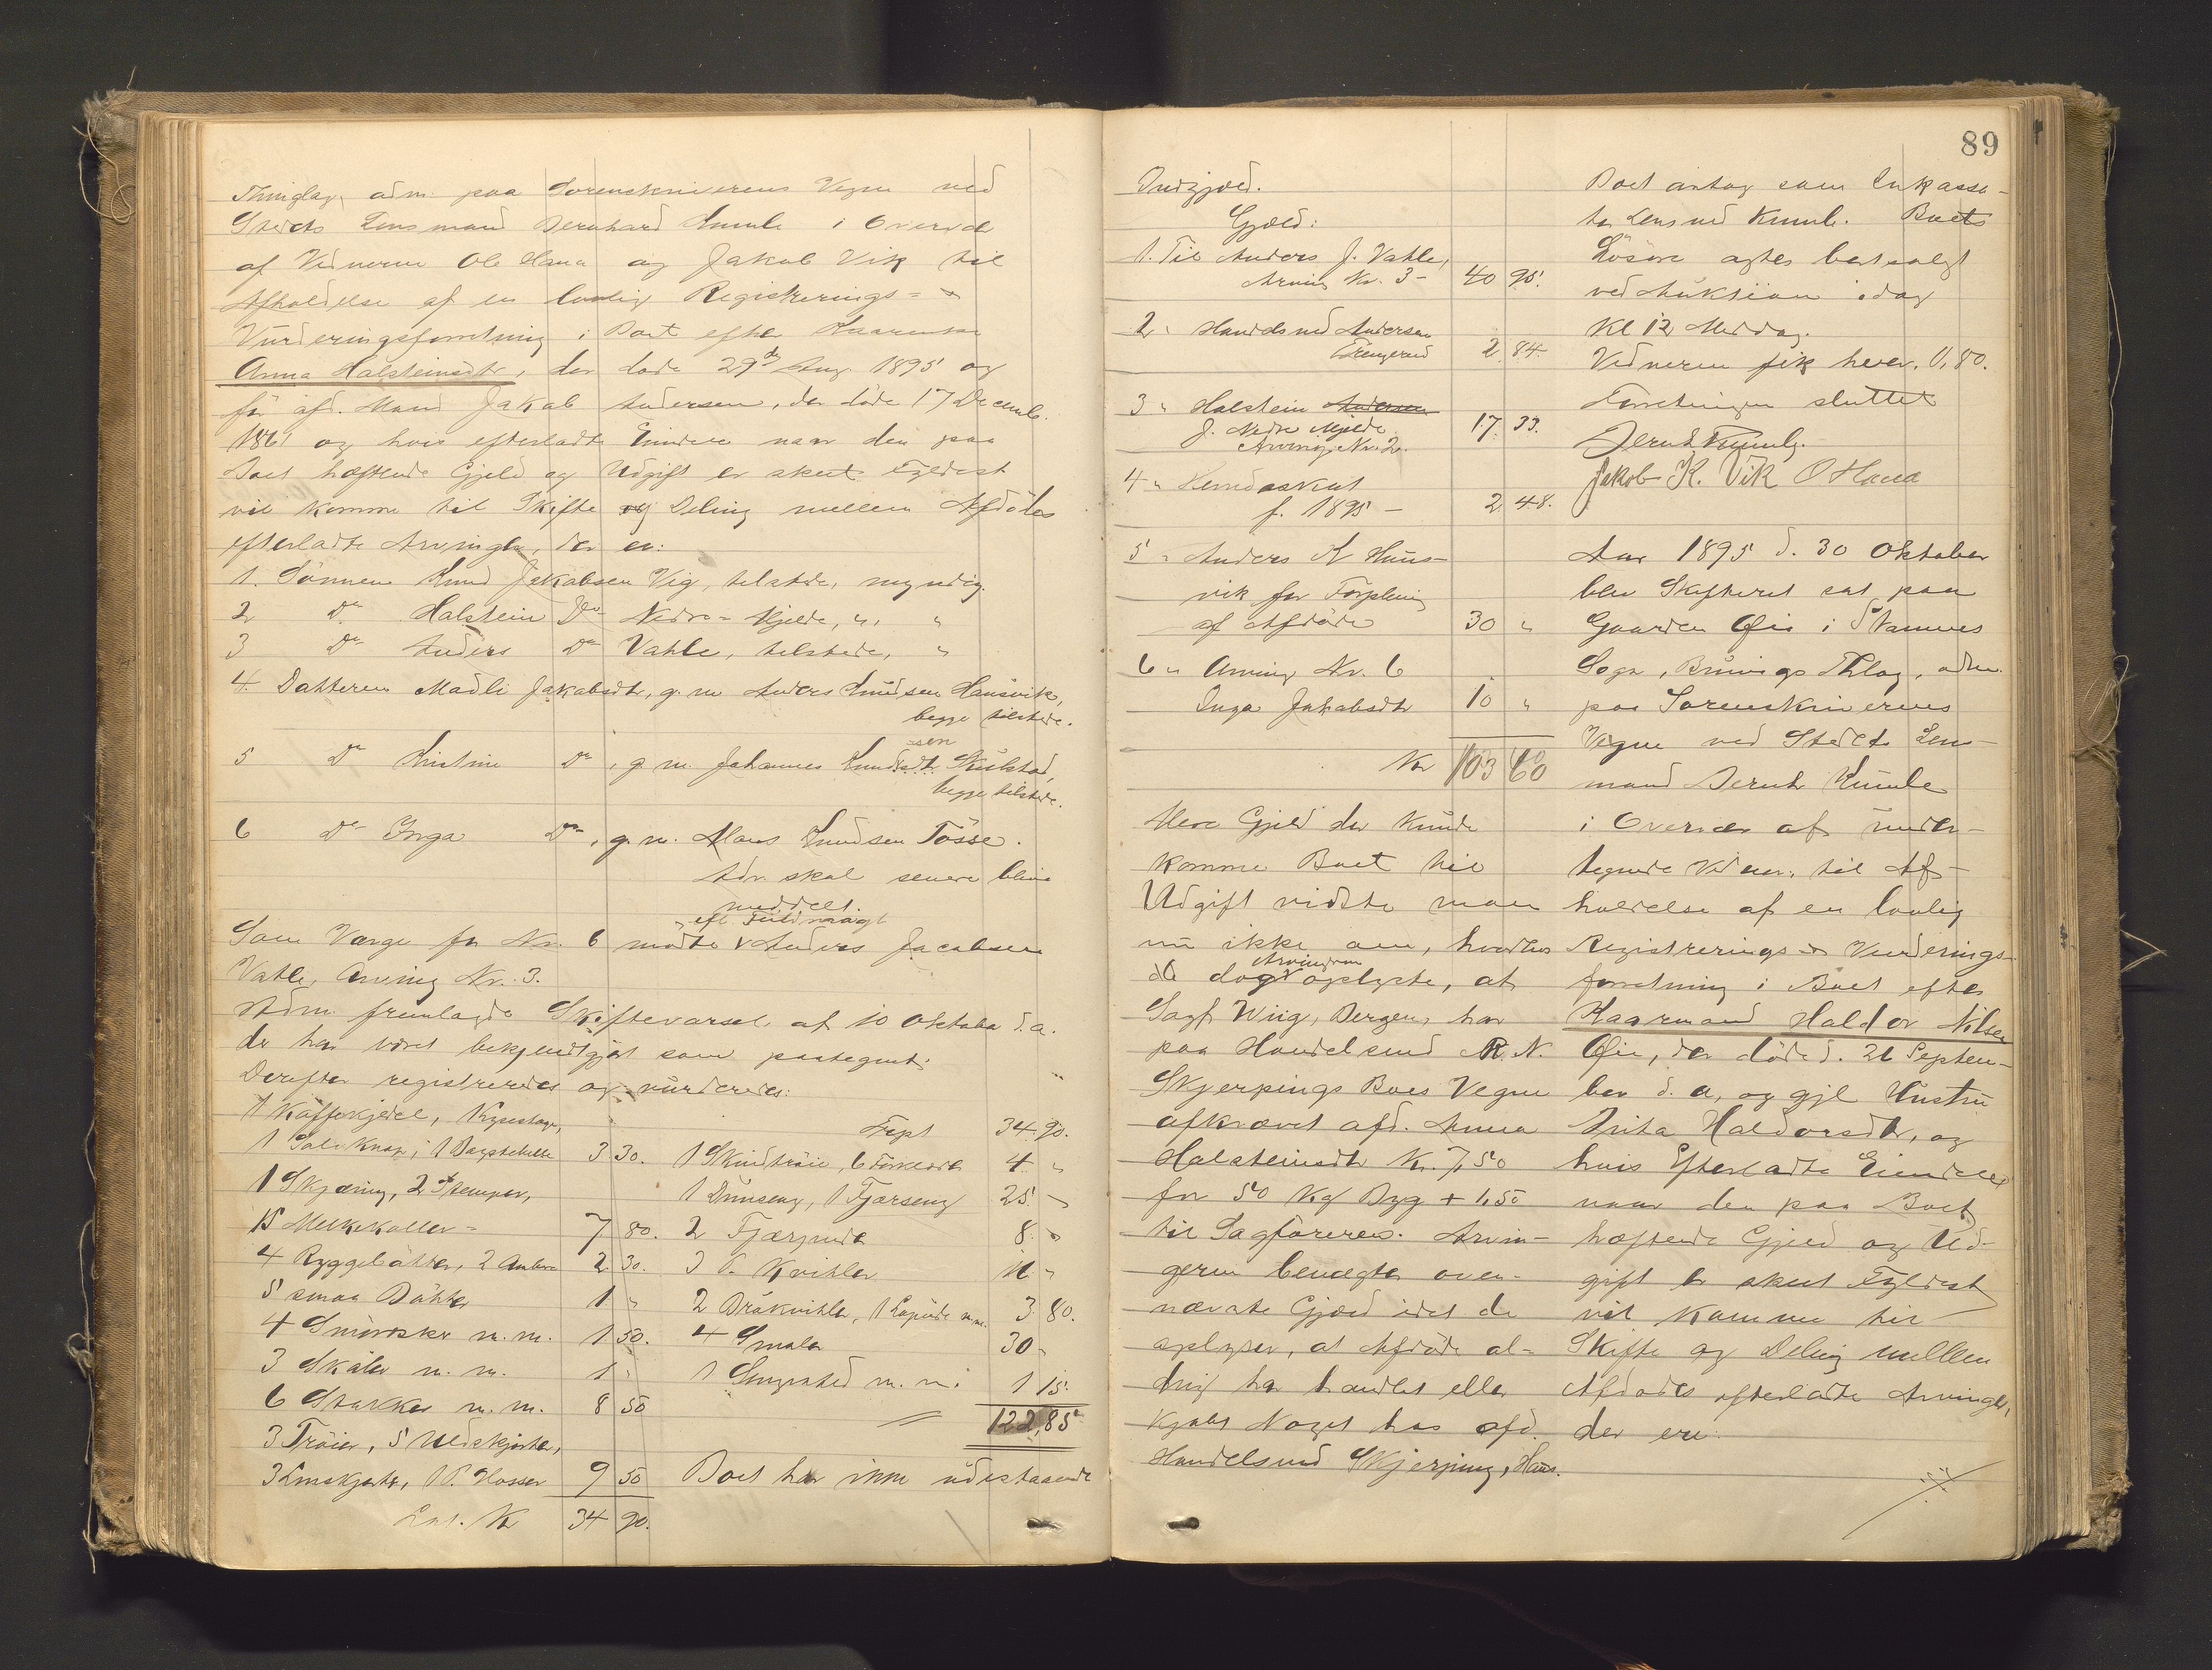 Thinglag, adm. paa Sorenskriverens Vegne ved
Stedets Lensmand Bernhard Kumle i Overvær
af Vidnerne Ole Hana og Jakob Vik til
Afholdelse af en lovlig Registrerings- &
Vurderingsforretning i Boet efter Kaarenke
Anna Halsteinsdtr, der døde 29de Aug 1895 og
før afd. Mand Jakob Andersen, der døde 17 Decemb.
1861 og hvis efterladte Eiendele naar den paa
Boet hæftende Gjeld og Udgift er skeet Fyldest
vil komme til Skifte og Deling mellem Afdødes
efterladte Arvinger, der er:
1. Sønnen Knud Jakobsen Vig, tilstede, myndig.
2 Do Halstein Do Nedre-Mjelde, "
3 Do Anders Do Vahle, tilstede, "
4. Datteren Madli Jakobsdtr, g. m. Anders Knudsen Hausvik,
begge tilstede.
5 Do Kristine Do, g. m. Johannes Knudsen Skulstad,
begge tilstede.
6 Do Inga Do, g. m. Mons Knudsen Tøsse.
Adr. skal senere blive
meddelt.
Som Værge for Nr. 6 mødte efl. Fuldmagt Anders Jacobsen
Vahle, Arving Nr. 3.
Adm. fremlagde Skiftevarsel af 10 Oktober d. a.
der har været bekjendtgjort som paategnet.
Derefter registreredes og vurderedes:
1 Kaffekjedel,
1 3 30.
1 Skjæring, 2 Stamper,
15 Melkekoller - 7 80.
4 Byggebøtter, 2 Ambre 2 30.
5 smaa Bøtter 1 "
4 m. m. 1 50.
3 Skåler m. m. 1 "
6 Stakker m. m. 8 50
3 Trøier, 5 Uldskjorter,
3 Linskjorter, 1 P. Hosser 9 50
Lat. Kr 34 90.
Trpt 34 90.
1 Skindtrøie, 6 Forklæde 4 "
1 Dunseng, 1 Fjærseng 25 "
2 Fjærpuder 8 "
3 P. Kvitler 11 "
2 Bråkvitler, 1 m.m. 3 80.
4 Smaler 30 "
1 m. m. 1 15.
122,85
Boet har inne udestaaende
89
Indgjæld.
Gjæld:
1. Til Anders J. Vahle,
Arving Nr. 3 - 40 95.
2 " Handelsmd Andersen
Trengereid 2 84.
3 " Halstein Andersen
J. Nedre Mjelde
Arving Nr. 2. 17 33.
4 " Herredsskat
f. 1895 - 2 48.
5 " Anders K Haus-
vik for Forpleining
af Afdøde 30 "
6 " Arving Nr. 6
Inga Jakobsdtr 10 "
Kr 103 60
Mere Gjeld der kunde
komme Boet til
Udgift vidste man
nu ikke om, hvorhos
de dog Arvingerne oplyste, at
Sagf. Wiig, Bergen, har
paa Handelsmd R. N.
Skjerpings Boes Vegne
afkrævet afd. Anna
Halsteinsdtr Kr. 7,50
for 50 Kg Byg + 1,50
til Sagføreren. Arvin-
gerne benegter oven-
nævnte Gjæld idet de
oplyser, at Afdøde al-
drig har handlet eller
kjøbt Noget hos afd.
Handelsmd Skjerping, Haus.
Boet antog som Inkassa-
tor Lensmd Kumle. Boets
Løsøre agtes bortsolgt
ved Auktion idag
Kl 12 Middag.
Vidnerne fik hver 0,80.
Forretningen sluttet
Bernh Kumle.
Jakob K. Vik O Hana
Aar 1895 d. 30 Oktober
blev Skifteret sat paa
Gaarden Øie i Stamnes
Sogn, Bruvigs Thlag, adm.
paa Sorenskriverens
Vegne ved Stedets Lens-
mand Bernh Kumle
i Overvær af under-
tegnede Vidner, til Af-
holdelse af en lovlig
Registrerings- & Vurderings-
forretning i Boet efter
Kaarmand Haldor Nilsen
Øie, der døde d. 21 Septem-
ber d. a, og gjl Hustru
Brita Haldorsdtr, og
hvis Efterladte Eiendele
naar den paa Boet
hæftende Gjeld og Ud-
gift er skeet Fyldest
vil komme til
Skifte og Deling mellem
Afdødes efterladte Arvinger,
der ere: